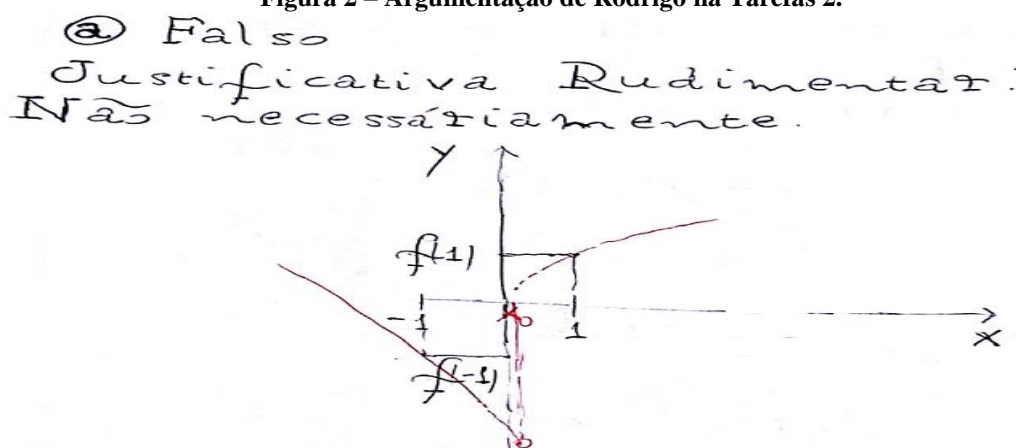 Figura 2 – Argumentação de Rodrigo na Tarefas 2.
ⓐ Falso
Justificativa Rudimentar:
Não necessáriamente.
y
f(1)
-1
x₀
1
x
f(-1)